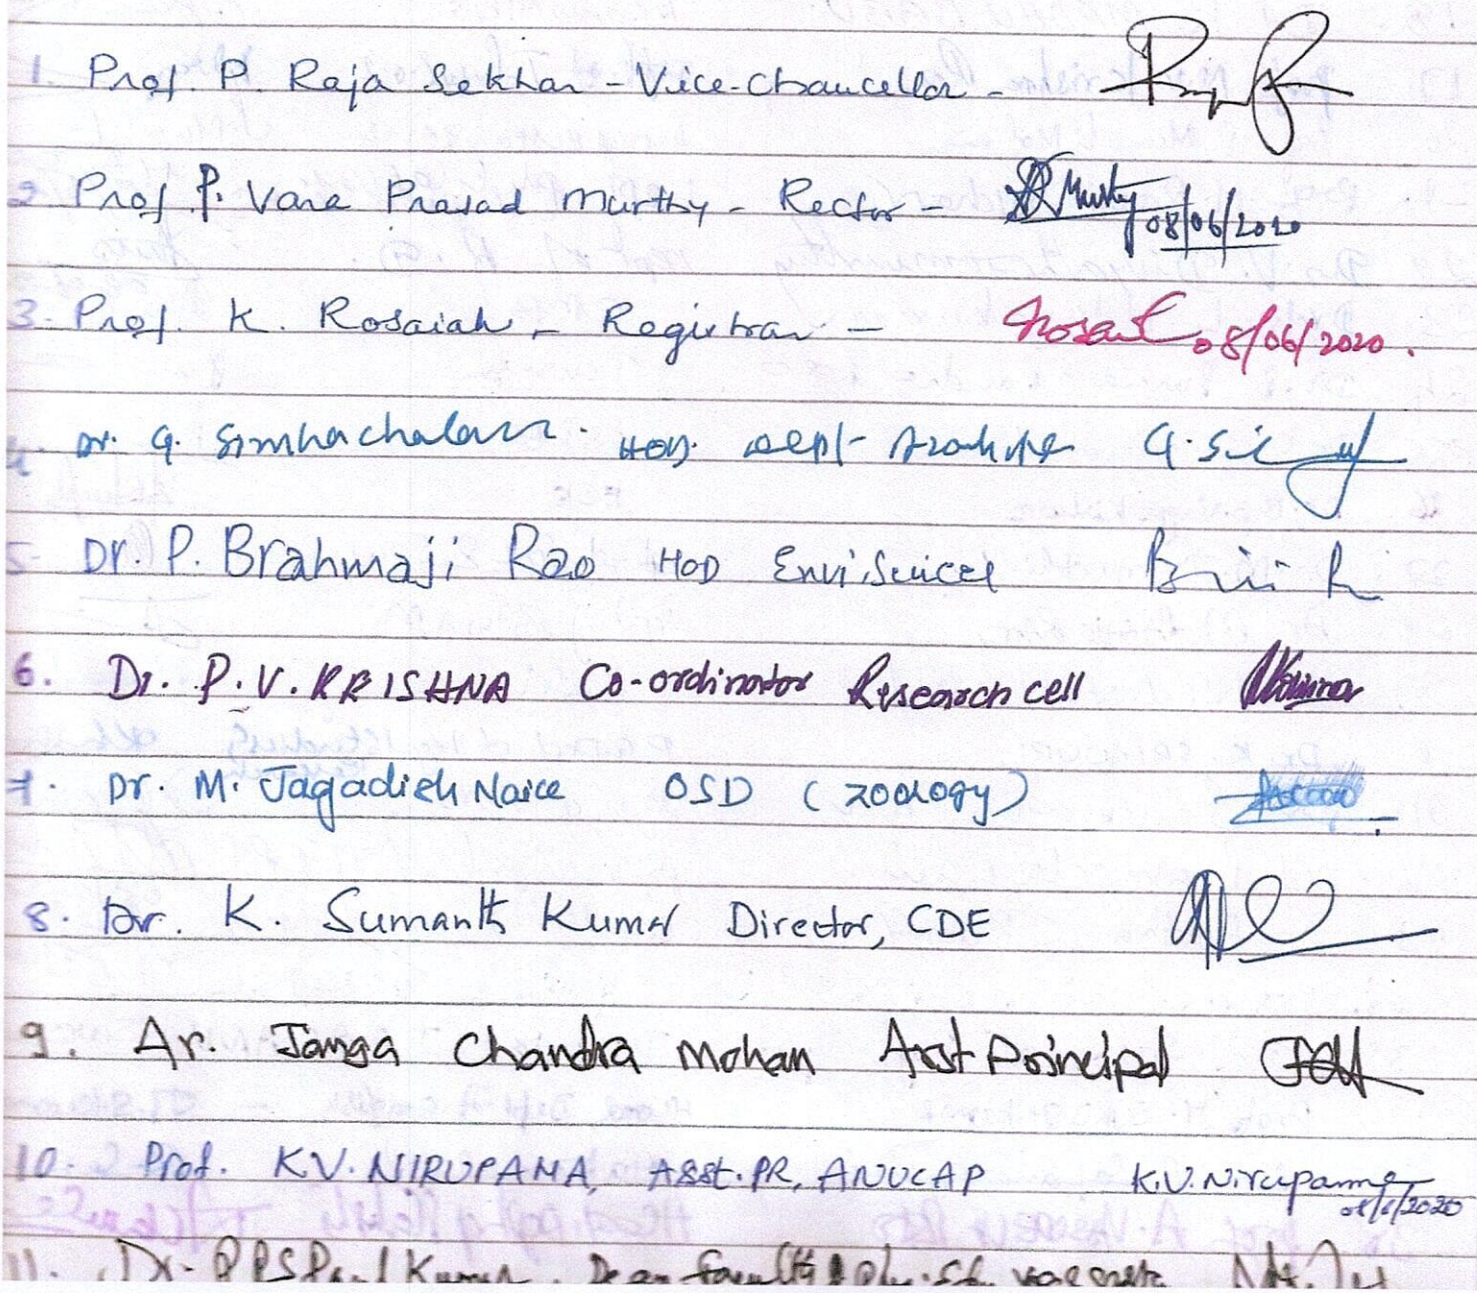 1. Prof. P. Raja Sekhar - Vice-Chancellor -
2. Prof P. Vara Prasad Murthy - Rector - Murthy 08/06/2020
3. Prof. K. Rosaiah - Registrar - 08/06/2020.
4. Dr. G. Simhachalam. HOD. Dept G.Si
5. Dr. P. Brahmaji Rao HOD Envi. Sciences
6. Dr. P.V. KRISHNA Co-ordinator Research cell
7. Dr. M. Jagadish Naick OSD (Zoology)
8. Dr. K. Sumanth Kumar Director, CDE
9. Ar. Janga Chandra Mohan Asst Principal
10. Prof. K.V. NIRUPAMA, Asst. PR, ANUCAP K.V. Nirupama
2020
11. Dr. Paul Kumar. Dean Faculty